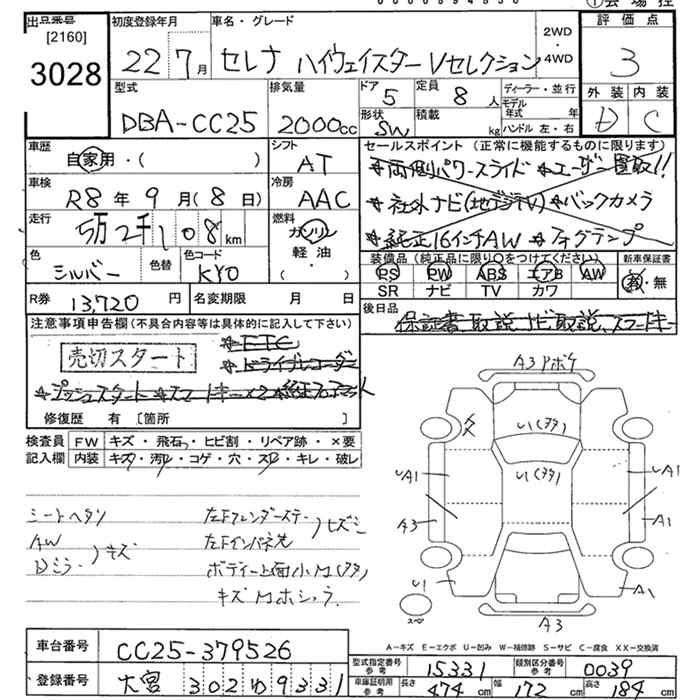 出品番号
[2160]
3028
初度登録年月
22 7月
車名・グレード
セレナ ハイウェイスター Vセレクション
2WD
・
4WD
評価点
3
外装 内装
D C
型式
DBA-CC25
排気量
2000cc
ドア 5
形状 SW
定員 8人
積載 kg
ディーラー・並行
モデル年式 年
ハンドル 左・右
車歴
自家用・( )
シフト
AT
セールスポイント (正常に機能するものに限ります)
*両側パワースライド *ユーザー買取!!
*社外ナビ(地デジTV)*バックカメラ
*純正16インチAW *フォグランプ
車検
R8年9月(8日)
冷房
AAC
走行
5万2千108km
燃料
ガソリン
軽油・( )
色
シルバー
色替
色コード
KY0
装備品 (純正品に限り○をつけてください)
PS PW ABS エアB AW
SR ナビ TV カワ
新車保証書
有・無
R券 13,720円
名変期限 月 日
後日品
保証書、取説、ナビ取説、スマートキー
注意事項申告欄(不具合内容等は具体的に記入して下さい)
売切スタート
*ETC
*ドライブレコーダー
*プッシュスタート *スマートキー×2 *純正フロアマット
修復歴 有 [箇所 ]
検査員 FW キズ・飛石・ヒビ割・リペア跡・×要
記入欄 内装 キズ・汚レ・コゲ・穴・スレ・キレ・破レ
シートヘタリ
AW
Dミラー
キズ
左Fフェンダーステー
左Fインパネ先
ヒズミ
ボディー上面小凹(ヌタ)
キズ凹ホシュウ
A3 Pボケ
U1(ヌタ)
U1(ヌタ)
UA1
A3
UA1
A1
U1
A1
A3
スペア
A-キズ E-エクボ U-凹み W-補修跡 S-サビ C-腐食 XX-交換済
車台番号 CC25-379526
登録番号 大宮 302 ゆ 9331
型式指定番号 参考 15331
類別区分番号 参考 0039
車庫証明用 参考 長さ 474cm 幅 172cm 高さ 184cm